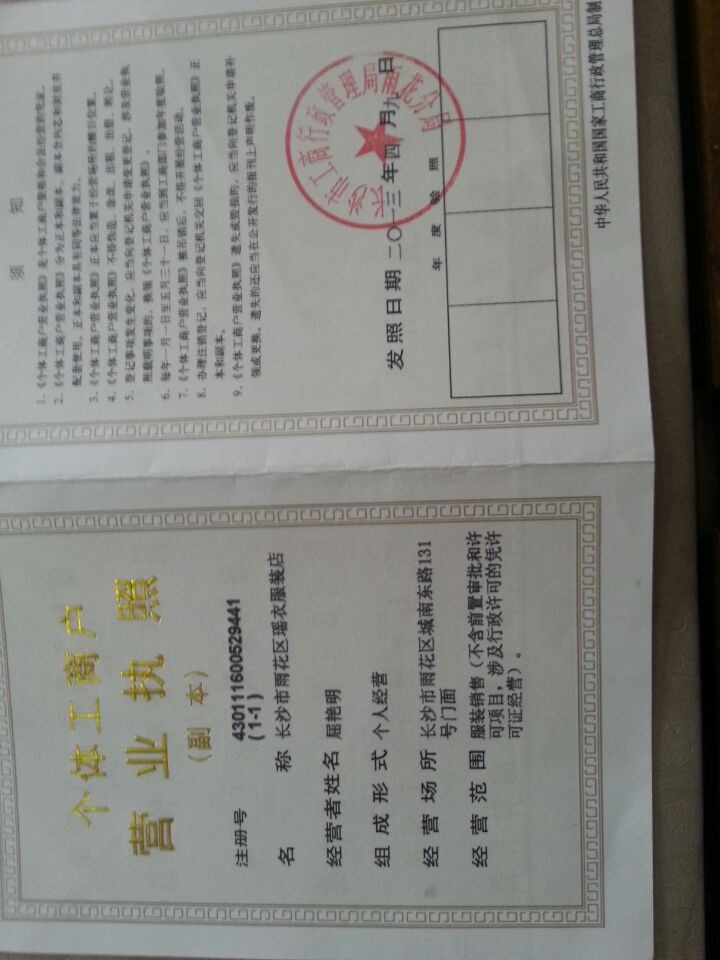 个体工商户
营业执照
（副 本）
注册号 430111600529441
(1-1)
名 称 长沙市雨花区瑶衣服装店
经营者姓名 屈艳明
组成形式 个人经营
经营场所 长沙市雨花区城南东路131
号门面
经营范围 服装销售（不含前置审批和许
可项目，涉及行政许可的凭许
可证经营）。
须 知
1、《个体工商户营业执照》是个体工商户资格和合法经营的凭证。
2、《个体工商户营业执照》分为正本和副本，副本含内芯和封皮并
配套使用，正本和副本具有同等法律效力。
3、《个体工商户营业执照》正本应当置于经营场所的醒目位置。
4、《个体工商户营业执照》不得伪造、涂改、出租、出借、转让。
5、登记事项发生变化，应当向登记机关申请变更登记，涉及营业执
照载明事项的，换领《个体工商户营业执照》。
6、每年一月一日至五月三十一日，应当到工商部门参加年度验照。
7、《个体工商户营业执照》被吊销后，不得开展经营活动。
8、办理注销登记，应当向登记机关交回《个体工商户营业执照》正
本和副本。
9、《个体工商户营业执照》遗失或毁损的，应当向登记机关申请补
领或更换。遗失的还应当在公开发行的报刊上声明作废。
长沙市工商行政管理局雨花分局
发照日期 二〇一三年四月九日
年 度 验 照
中华人民共和国国家工商行政管理总局制